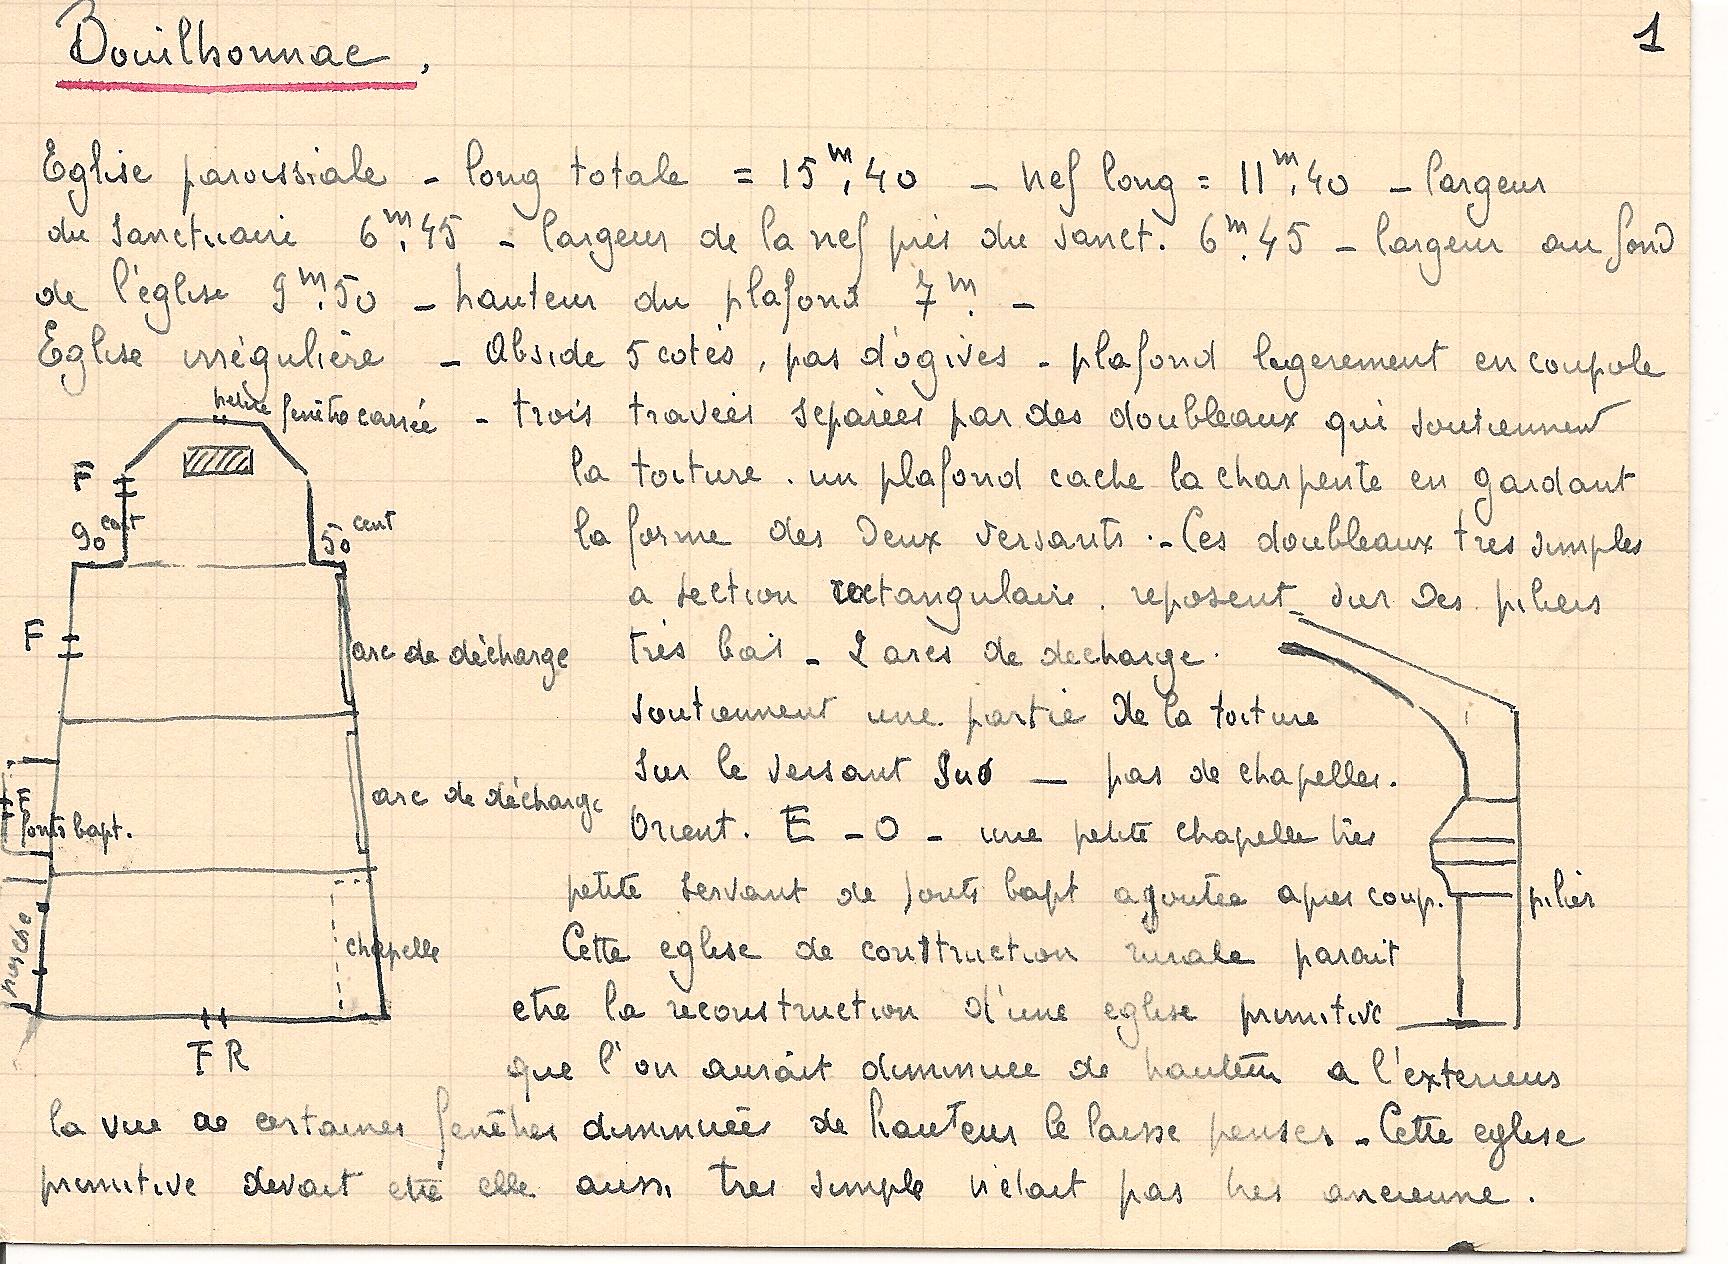 Bouilhonnac.
1
Eglise paroissiale - long totale = 15m,40 - nef long = 11m,40 - largeur
du sanctuaire 6m,45 - largeur de la nef près du sanct. 6m,45 - largeur au fond
de l'église 9m,50 - hauteur du plafond 7m. -
Eglise irrégulière - Abside 5 cotés, pas d'ogives - plafond legerement en coupole
petite fenêtre carrée - trois travées séparées par des doubleaux qui soutiennent
la toiture. un plafond cache la charpente en gardant
la forme des deux versants. - Ces doubleaux tres simples
a section rectangulaire. reposent sur des piliers
très bas - 2 arcs de decharge.
soutiennent une partie de la toiture
sur le versant Sud — pas de chapelles.
Orient. E - O - une petite chapelle très
petite servant de fonts bapt agoutee apres coup.
Cette eglise de construction rurale parait
etre la reconstruction d'une eglise primitive
que l'on aurait diminuee de hauteur a l'exterieur
la vue de certaines fenêtres diminuées de hauteur le laisse penser. - Cette eglise
primitive devait etre elle aussi tres simple n'était pas tres ancienne.
F
90 cent
50 cent
F
arc de décharge
arc de décharge
F
fonts bapt.
chapelle
porche
F R
pilier